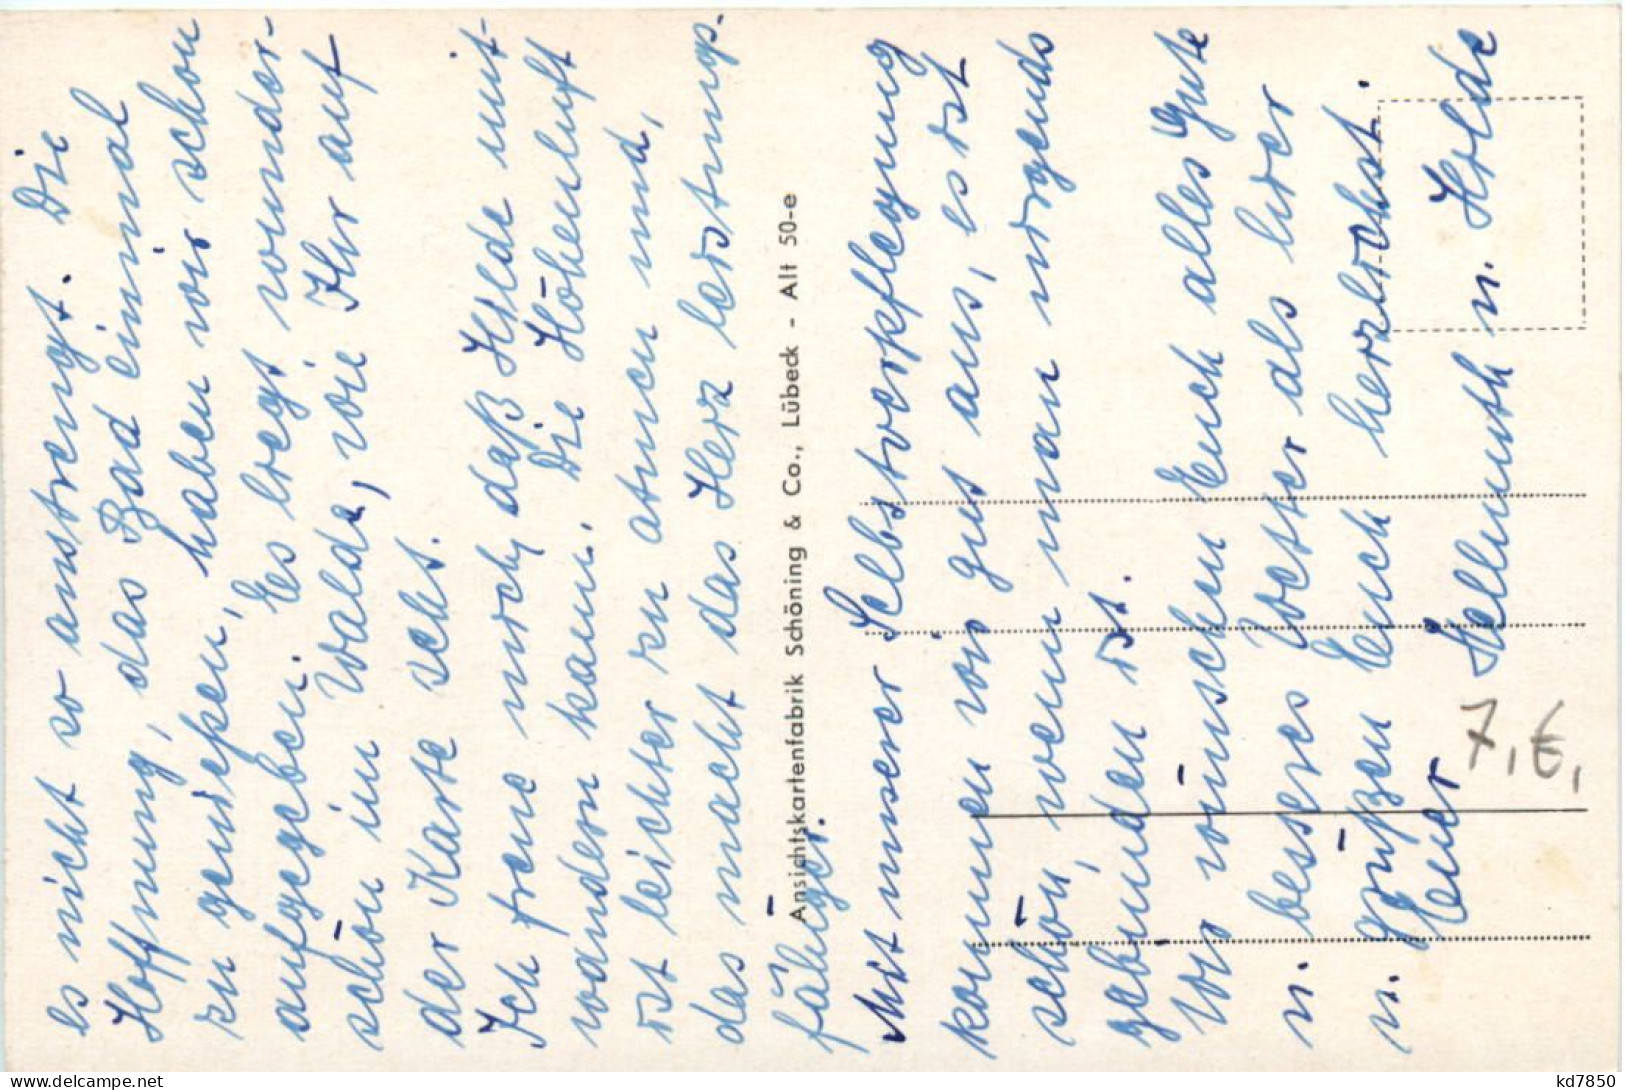 es nicht so anstrengt. Die
Hoffnung, das Bad einmal
zu genießen, haben wir schon
aufgegeben. Es liegt wunder-
schön im Walde, wie Ihr auf
der Karte seht.
Ich freue mich, daß Hilde mit-
wandern kann. Die Höhenluft
ist leichter zu atmen und,
das macht das Herz leistungs-
fähiger.
Ansichtskartenfabrik Schöning & Co., Lübeck - Alt 50-e
Mit unserer Selbstverpflegung
kommen wir gut aus, es ist
schön, wenn man nirgends
gebunden ist.
Wir wünschen Euch alles Gute
u. besseres Wetter als hier
u. grüßen Euch herzlichst.
Euer Hellmuth u. Hilde
7,€,
kd7850